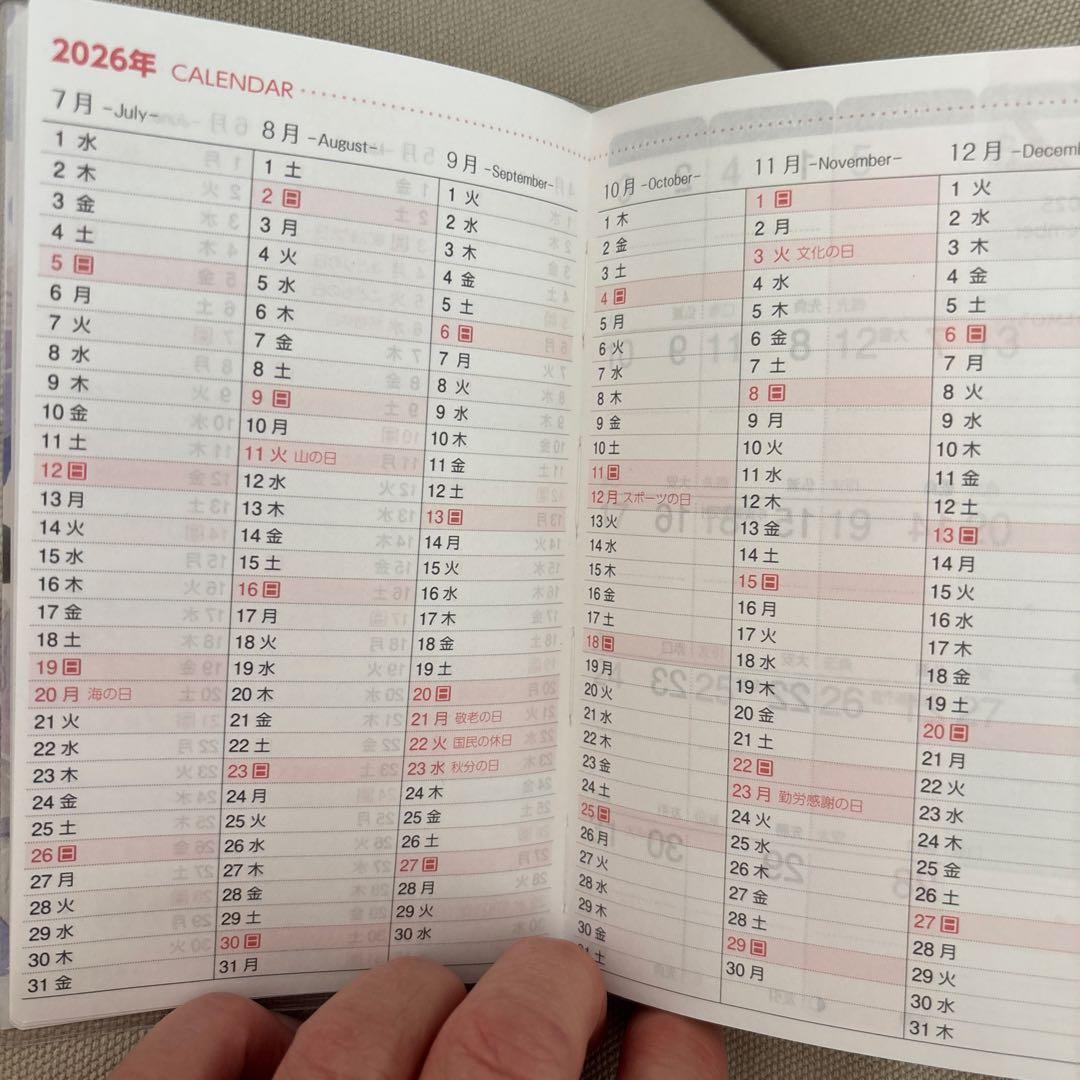 2026年 CALENDAR
7月 -July-
1 水
2 木
3 金
4 土
5 日
6 月
7 火
8 水
9 木
10 金
11 土
12 日
13 月
14 火
15 水
16 木
17 金
18 土
19 日
20 月 海の日
21 火
22 水
23 木
24 金
25 土
26 日
27 月
28 火
29 水
30 木
31 金
8月 -August-
1 土
2 日
3 月
4 火
5 水
6 木
7 金
8 土
9 日
10 月
11 火 山の日
12 水
13 木
14 金
15 土
16 日
17 月
18 火
19 水
20 木
21 金
22 土
23 日
24 月
25 火
26 水
27 木
28 金
29 土
30 日
31 月
9月 -September-
1 火
2 水
3 木
4 金
5 土
6 日
7 月
8 火
9 水
10 木
11 金
12 土
13 日
14 月
15 火
16 水
17 木
18 金
19 土
20 日
21 月 敬老の日
22 火 国民の休日
23 水 秋分の日
24 木
25 金
26 土
27 日
28 月
29 火
30 水
10月 -October-
1 木
2 金
3 土
4 日
5 月
6 火
7 水
8 木
9 金
10 土
11 日
12 月 スポーツの日
13 火
14 水
15 木
16 金
17 土
18 日
19 月
20 火
21 水
22 木
23 金
24 土
25 日
26 月
27 火
28 水
29 木
30 金
31 土
11月 -November-
1 日
2 月
3 火 文化の日
4 水
5 木
6 金
7 土
8 日
9 月
10 火
11 水
12 木
13 金
14 土
15 日
16 月
17 火
18 水
19 木
20 金
21 土
22 日
23 月 勤労感謝の日
24 火
25 水
26 木
27 金
28 土
29 日
30 月
12月 -Decem
1 火
2 水
3 木
4 金
5 土
6 日
7 月
8 火
9 水
10 木
11 金
12 土
13 日
14 月
15 火
16 水
17 木
18 金
19 土
20 日
21 月
22 火
23 水
24 木
25 金
26 土
27 日
28 月
29 火
30 水
31 木